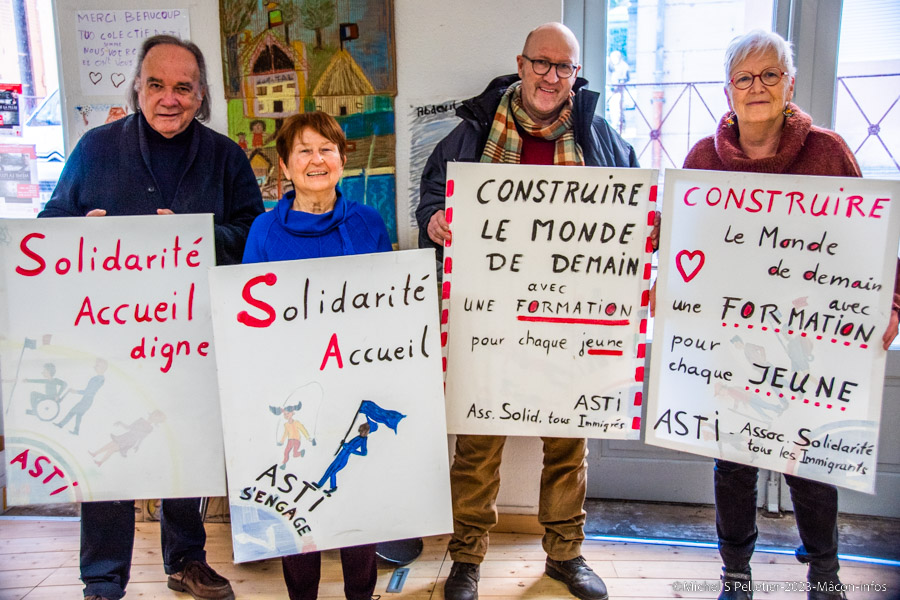 MERCI BEAUCOUP
Solidarité
Accueil
digne
ASTI
Solidarité
Accueil
ASTI
S'ENGAGE
CONSTRUIRE
LE MONDE
DE DEMAIN
AVEC
UNE FORMATION
pour chaque jeune
ASTI
Ass. Solid. tous Immigrés
CONSTRUIRE
Le Monde
de demain
avec
une FORMATION
pour
chaque JEUNE
ASTI - Assoc. Solidarité
tous les Immigrants
©Michel S Pelletier-2023-Mâcon-infos